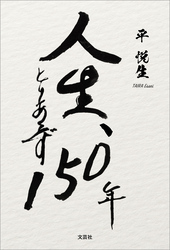 平 悦生
TAIRA Essei
人生、
とりあえず
150年!
文芸社